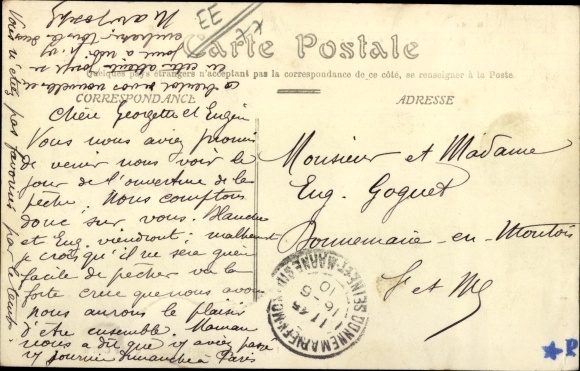 EE
Carte Postale
Quelques pays étrangers n'acceptent pas la correspondance de ce côté, se renseigner à la Poste
CORRESPONDANCE
ADRESSE
Chère Georgette et Eugène
Vous nous aviez promis
de venir nous voir le
jour de l'ouverture de la
pêche. Nous comptons
donc sur vous. Blanche
et Eug. viendront; malheureust
je crois qu'il ne sera guère
facile de pêcher vu la
forte crue que nous avons
nous aurons le plaisir
d'être ensemble. Maman
nous a dit que vs aviez passé
journée dimanche à Paris
Vous n'étiez pas favorisés par le temps.
Monsieur et Madame
Eug. Goguet
Donnemarie-en-Montois
S et M
DONNEMARIE-EN-MONTOIS
SEINE-ET-MARNE
16-6
10
P